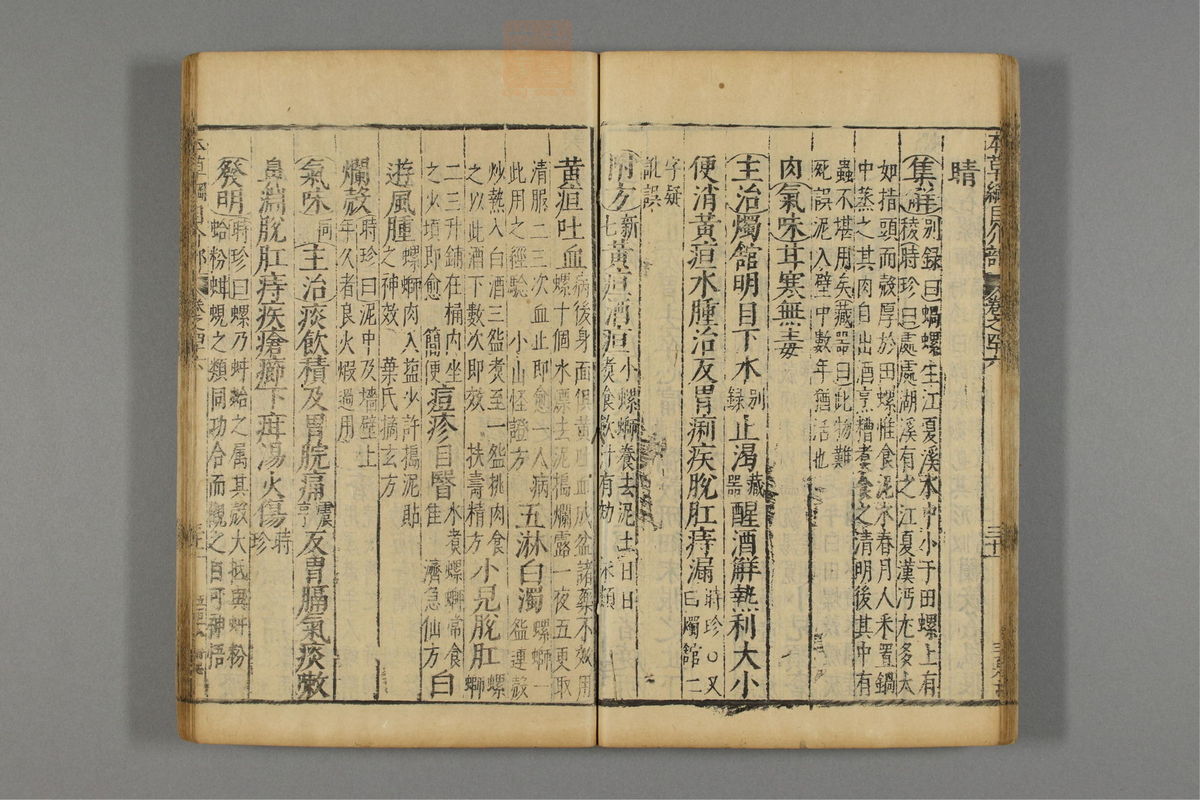 本草綱目介部 卷之四十六
睛
集解別錄曰蝸螺生江夏溪水中小于田螺上有
稜時珍曰處處湖溪有之江夏漢沔尤多大
如指頭而殼厚於田螺惟食泥水春月人采置鍋
中蒸之其肉自出酒烹糟煮食之清明後其中有
蟲不堪用矣藏器曰此物難
死誤泥入壁中數年猶活也
肉氣味甘寒無毒
主治燭館明目下水別錄止渴藏器醒酒解熱利大小
便消黃疸水腫治反胃痢疾脫肛痔漏時珍○又曰燭館二
字疑
訛誤
附方新七黃疸酒疸小螺螄養去泥土日日煮食飲汁有効 永類
黃疸吐血病後身面俱黃吐血成盆諸藥不效用螺十個水漂去泥搗爛露一夜五更取
清服二三次血止即愈一人病此用之經驗 小山怪證方 五淋白濁螺螄一盌連殼
炒熱入白酒三盌煮至一盌挑肉食之以此酒下數次即效 扶壽精方 小兒脫肛螺螄
二三升鋪在桶內坐之少頃即愈 簡便 痘疹目瞖水煮螺螄常食佳 濟急仙方 白
遊風腫螺螄肉入盐少許搗泥貼之神效 葉氏摘玄方
爛殼時珍曰泥中及墻壁上年久者良火煆過用
氣味同 主治痰飲積及胃脘痛震亨反胃膈氣痰嗽
鼻淵脫肛痔疾瘡癤下疳湯火傷時珍
發明時珍曰螺乃蚌蛤之属其殼大抵與蚌粉
蛤粉蚶蜆之類同功合而觀之自可神悟